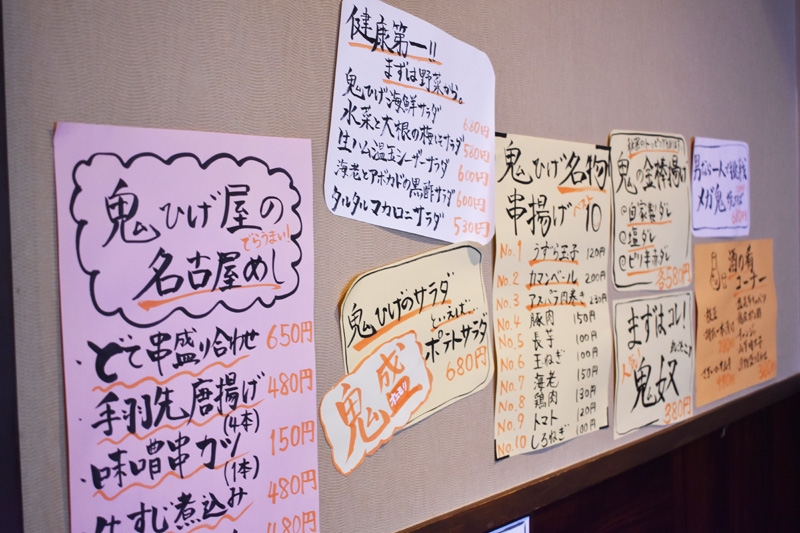 鬼ひげ屋の
でらうまい!
名古屋めし
・どて串盛り合わせ 650円
・手羽先唐揚げ 480円
(4本)
・味噌串カツ 150円
(1本)
牛すじ煮込み 480円
480円
健康第一!!
まずは野菜から。
鬼ひげ海鮮サラダ 680円
水菜と大根の梅しそサラダ 580円
生ハム温玉シーザーサラダ 600円
海老とアボカドの黒酢サラダ 600円
タルタルマカロニサラダ 530円
鬼ひげのサラダ
といえば…
ポテトサラダ
680円
鬼盛
鬼ひげ名物
串揚げベスト10
No.1 うずら玉子 120円
No.2 カマンベール 200円
No.3 アスパラ肉巻き 230円
No.4 豚肉 150円
No.5 長芋 100円
No.6 玉ねぎ 100円
No.7 海老 150円
No.8 鶏肉 130円
No.9 トマト 120円
No.10 しろねぎ 100円
鬼の金棒揚げ
@自家製ダレ
@塩ダレ
@ピリ辛ダレ
各580円
まずはコレ!
鬼奴
380円
男なら一人で挑戦
メガ鬼
酒の肴
コーナー